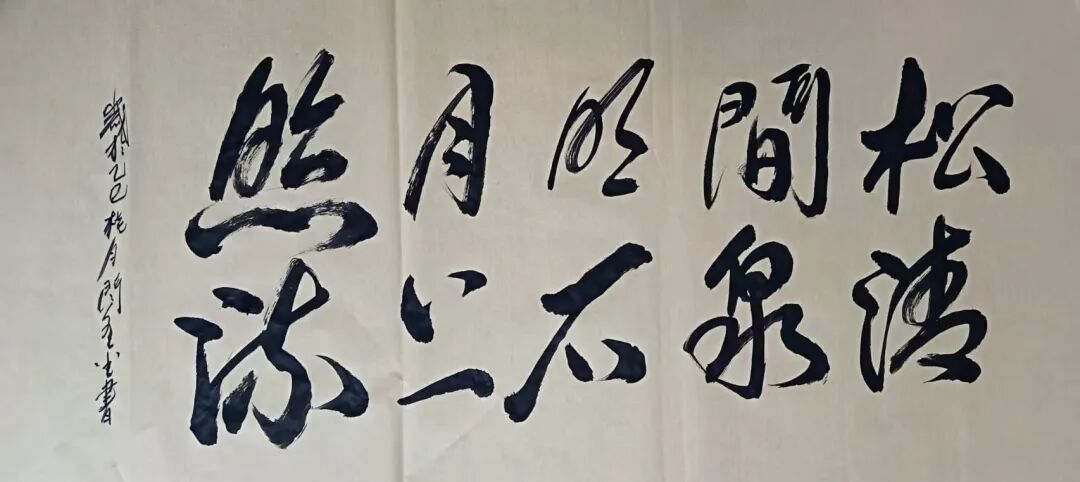 松間明月照
清泉石上流
歲於乙巳桂月書